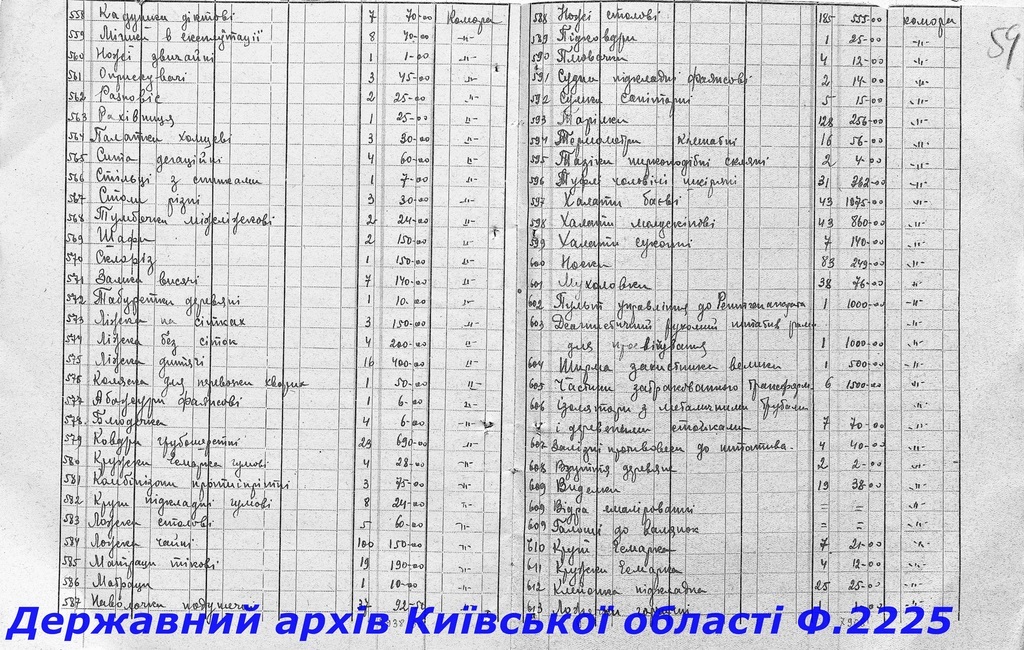 558 Кадушки діктові 7 70-00 Комора
559 Мішки в експлутації 8 40-00 -"-
560 Ножі звичайні 1 1-00 -"-
561 Опрыскувачі 3 45-00 -"-
562 Разновіс 2 25-00 -"-
563 Рахівниця 1 25-00 -"-
564 Палатки холщеві 3 30-00 -"-
565 Сита дегаційні 4 60-00 -"-
566 Стільці з спинками 1 7-00 -"-
567 Столи різні 3 30-00 -"-
568 Тумбочки міжліжкові 2 24-00 -"-
569 Шафи 2 150-00 -"-
570 Склоріз 1 150-00 -"-
571 Замки висячі 7 140-00 -"-
572 Табуретки деревяні 1 10-00 -"-
573 Ліжка на сітках 3 150-00 -"-
574 Ліжка без сіток 4 200-00 -"-
575 Ліжка дитячі 16 400-00 -"-
576 Коляска для перевозки хворих 1 50-00 -"-
577 Абажури фаянсові 1 6-00 -"-
578 Блюдочка 4 6-00 -"-
579 Ковдри грубошерстні 23 690-00 -"-
580 Кружки Есмарха гумові 4 28-00 -"-
581 Комбінізони протиіпрітні 3 75-00 -"-
582 Круги підкладні гумові 8 24-00 -"-
583 Ложки столові 5 60-00 -"-
584 Ложки чайні 100 150-00 -"-
585 Матраци тікові 19 190-00 -"-
586 Матраци 1 10-00 -"-
587 Наволочки подушечні 37 92-50 -"-
59
588 Ножі столові 185 555-00 комора
589 Підковдри 1 25-00 -"-
590 Плювачки 4 12-00 -"-
591 Судна підкладні фаянсові 2 14-00 -"-
592 Сумки санітарні 5 15-00 -"-
593 Тарілки 128 256-00 -"-
594 Термометри Кімнатні 16 56-00 -"-
595 Тазіки ниркоподібні скляні 2 4-00 -"-
596 Туфлі чоловічі шкіряні 31 762-00 -"-
597 Халати баєві 43 1075-00 -"-
598 Халати молускінові 43 860-00 -"-
599 Халати суконні 7 140-00 -"-
600 Носки 83 249-00 -"-
601 Мухоловки 38 76-00 -"-
602 Пульт управління до Рентгенапарата 1 1000-00 -"-
603 Деагностичний рухомий штатив рами -"-
для просвічування 1 1000-00 -"-
604 Ширма захистника велика 1 500-00 -"-
605 Частини забракованного трансформ. 6 1500-00 -"-
606 Ізолятори з металичними трубами
і деревяними стойками 7 70-00 -"-
607 Залізні противовеси до штатива. 4 40-00 -"-
608 Взуття деревяне 2 2-00 -"-
609 Виделки 19 38-00 -"-
609 Відра емаліровані = = -"-
609 Галоші до Валянок = = -"-
610 Круги Есмарха 7 21-00 -"-
611 Кружки Есмарха 4 12-00 -"-
612 Клейонка підкладна 25 25-00 -"-
613
Державний архів Київської області Ф.2225